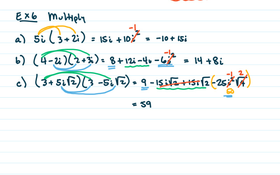 Ex 6 Multiply
a) 5i (3+2i) = 15i + 10i² -1 = -10 + 15i
b) (4-2i)(2+3i) = 8 + 12i - 4i - 6i² -1 = 14 + 8i
c) (3+5i√2)(3-5i√2) = 9 - 15i√2 + 15i√2 (-25i² -1 √4 2)
= 59